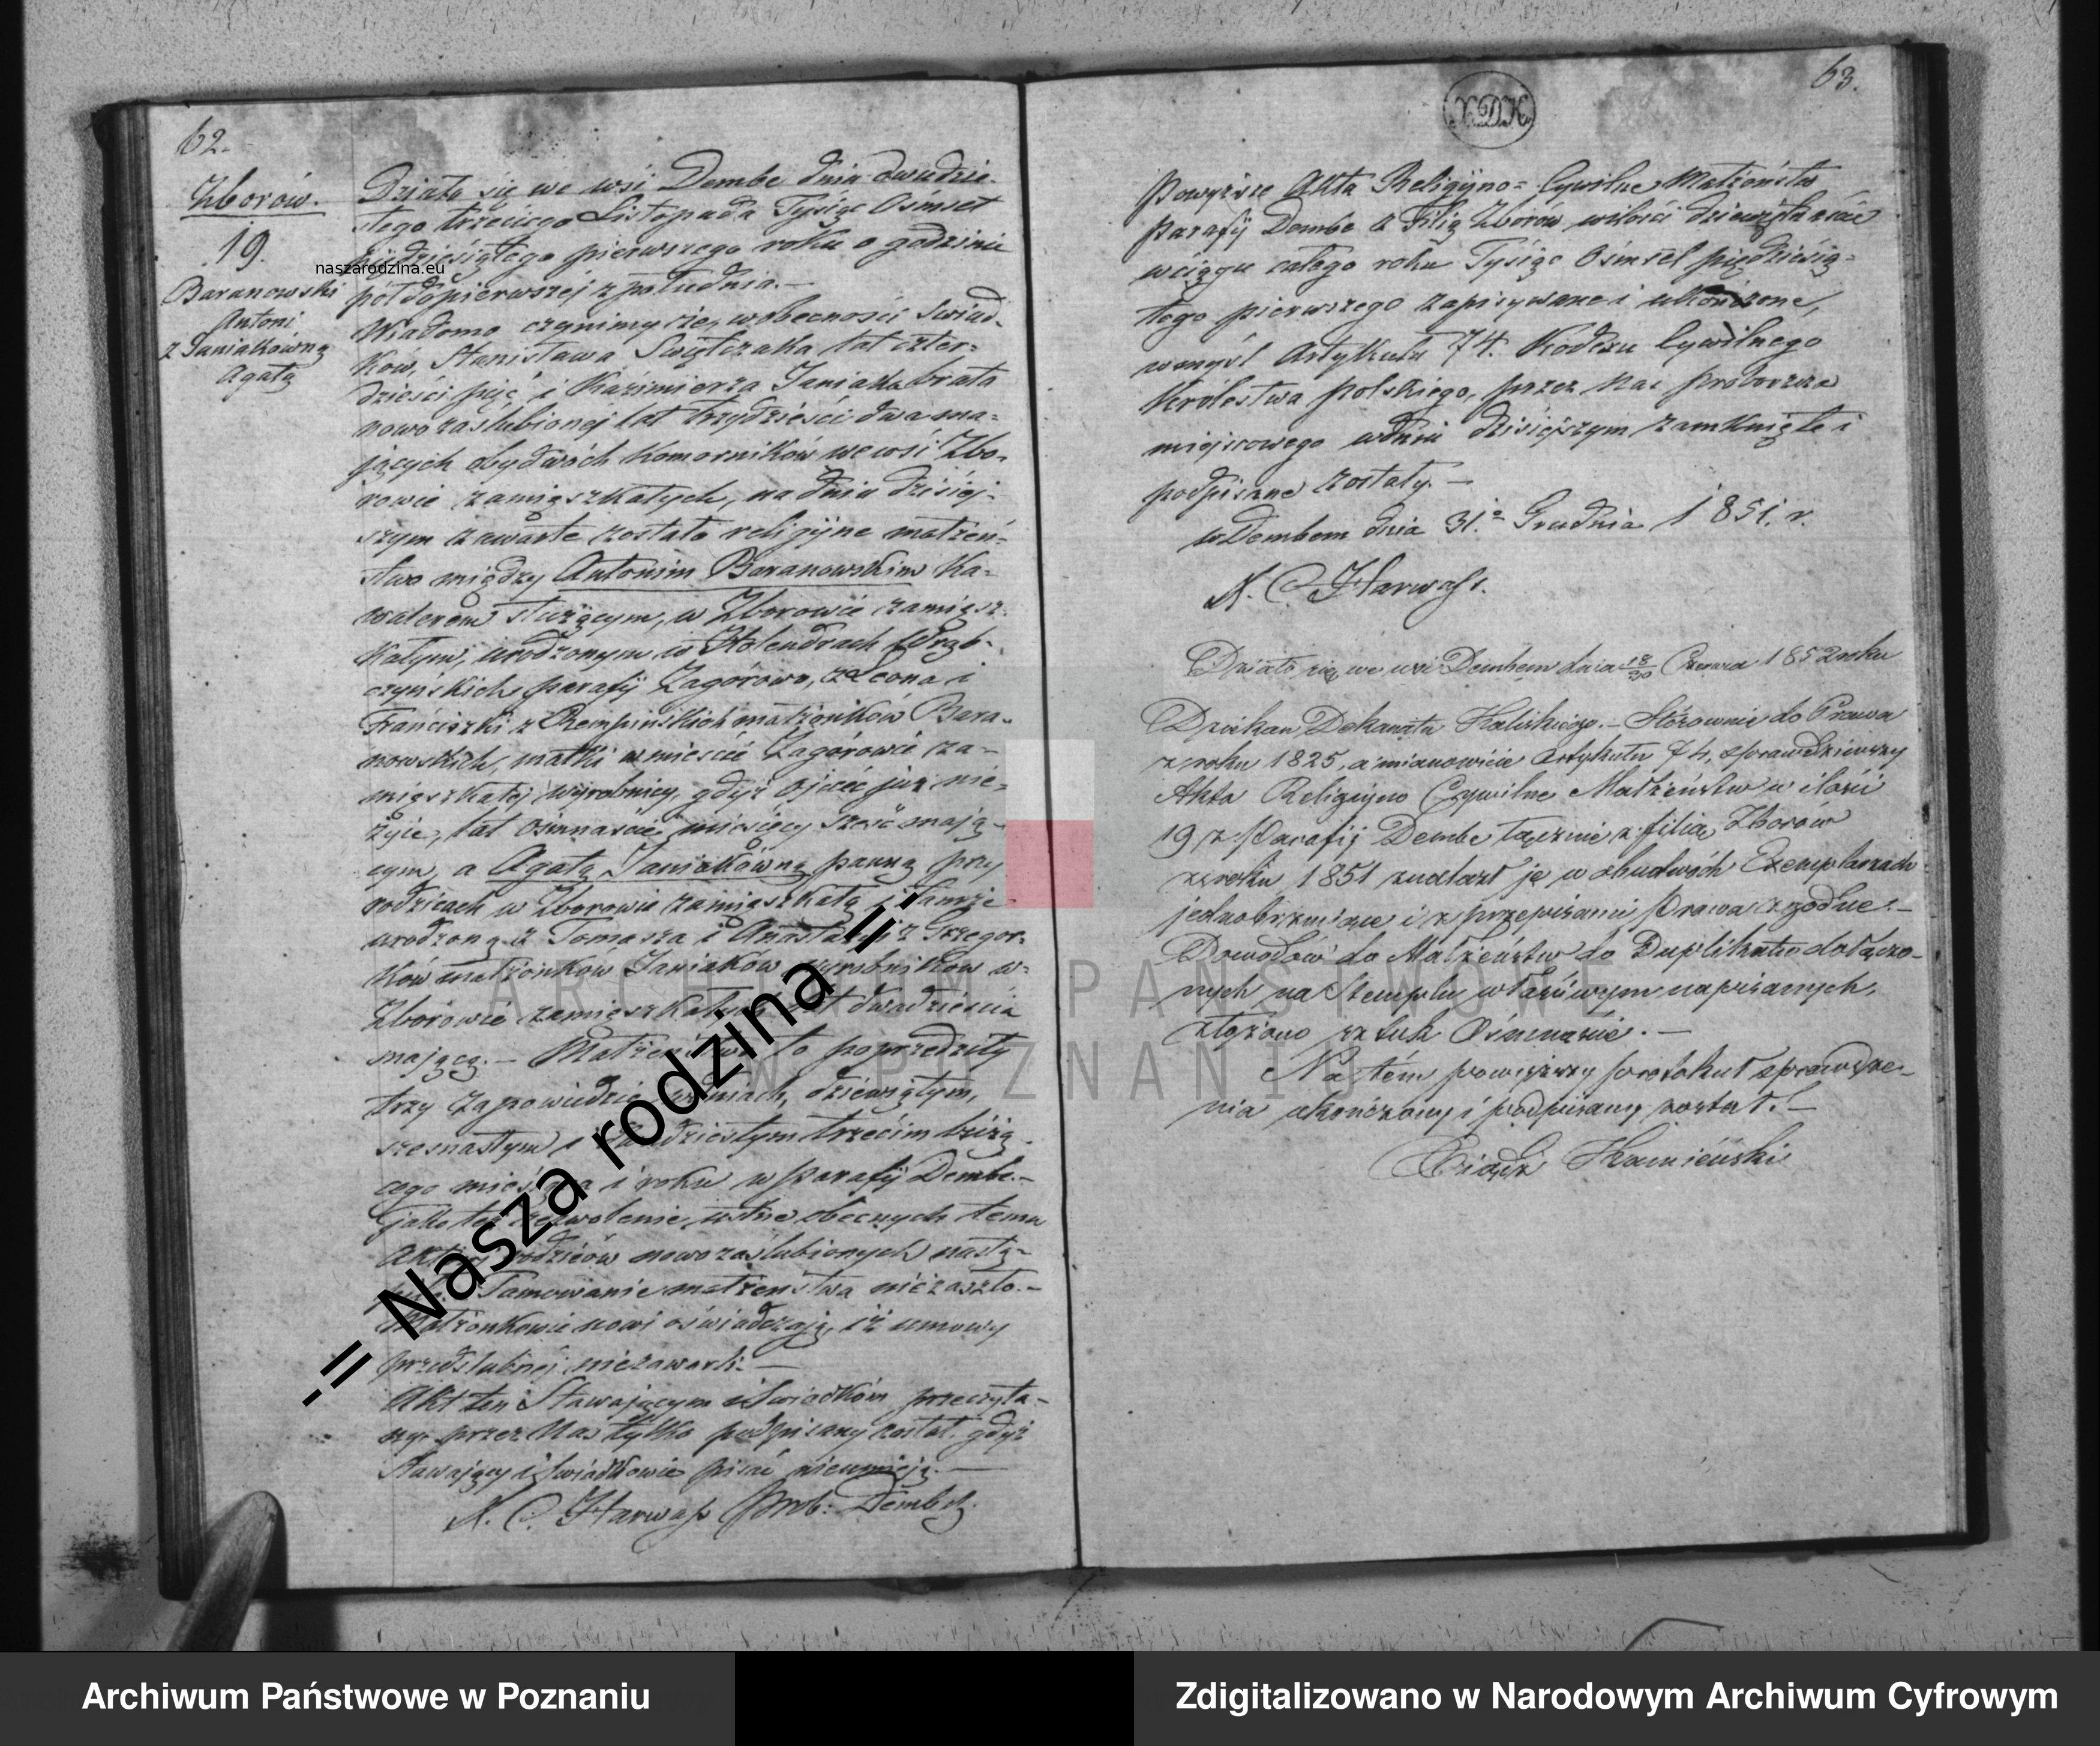 62.
Zborów.
19.
Baranowski
Antoni
z Janiakówną
Agatą
Działo się we wsi Dembe dnia dwudzie-
stego trzeciego Listopada Tysiąc Ośmset
pięćdziesiątego pierwszego roku o godzinie
pół do pierwszej z południa.—
Wiadomo czynimy że, w obecności Świad-
ków, Stanisława Świętczaka lat czter-
dzieści pięć i Kazimierza Janiaka brata
nowo zaślubionej lat trzydzieści dwa ma-
jących obydwóch Komorników we wsi Zbo-
rowie zamięszkałych, na dniu dzisiej-
szym zawarte zostało religijne małżeń-
stwo między Antonim Baranowskim Ka-
walerem służącym, w Zborowie zamięsz-
kałym, urodzonym w Holendrach Wrąb-
czyńskich parafij Zagórowo, z Leona i
Franciszki z Rempińskich małżonków Bara-
nowskich, matki w mieście Zagórowie za-
mięszkałej wyrobnicy, gdyż ojciec już nie-
żyie, lat ośmnaście miesięcy sześć mają-
cym, a Agatą Janiakówną panną przy
rodzicach w Zborowie zamięszkałą i tamże
urodzoną z Tomasza i Anastazyi z Grzegor-
ków małżonków Janiaków wyrobników w-
Zborowie zamięszkałych lat dwadzieścia
mającą.— Małżeństwo to poprzedziły
trzy zapowiedzie w dniach, dziewiątym,
szesnastym i dwudziestym trzecim bieżą-
cego miesiąca i roku w Parafij Dembe.—
jako też zezwolenie ustne obecnych temu
Aktowi rodziców nowozaślubionych nastą-
piło. Tamowanie małżeństwa nie zaszło.—
Małżonkowie nowi oświadczają, iż umowy
przedślubnej niezawarli.—
Akt ten Stawającym i Świadkom przeczyta-
ny przez Nas tylko podpisany został, gdyż
Stawający i Świadkowie pisać nieumieją.—
X. C. Harwass Prob: Dembs.
63.
X.D.K.
Powyższe Akta Religijno=Cywilne Małżeństw
Parafij Dembe z Filią Zborów w ilości dziewiętnaście
w ciągu całego roku Tysiąc Ośmset pięćdziesią-
tego pierwszego zapisywane i ukończone,
w myśl Artykułu 74. Kodexu Cywilnego
Królestwa Polskiego, przez Nas proboszcza
miejscowego w dniu dzisiejszym zamknięte i
podpisane zostały.—
w Dembem dnia 31.º Grudnia 1851. r.
X. C. Harwass.
Działo się we wsi Dembem dnia 18/30 Czerwca 1852 roku
Dziekan Dekanatu Kaliskiego.— Stósownie do Prawa
z roku 1825, a mianowicie Artykułu 74, sprawdziwszy
Akta Religijno Cywilne Małżeństw w ilości
19 z Parafij Dembe łącznie z filią Zborów
z roku 1851 znalazł je w obudwóch Exemplarzach
jednobrzmiące i z przepisami Prawa zgodne.—
Dowodów do Małżeństw do Duplikatu dołączo-
nych na Stemplu właściwym napisanych,
złożono sztuk Ośmnaście.—
Na tém powyższy protokuł sprawdze-
nia ukończony i podpisany został.—
Xiądz Kamieński
naszarodzina.eu
-= Nasza rodzina =-
ARCHIWUM PAŃSTWOWE
W POZNANIU
Archiwum Państwowe w Poznaniu
Zdigitalizowano w Narodowym Archiwum Cyfrowym